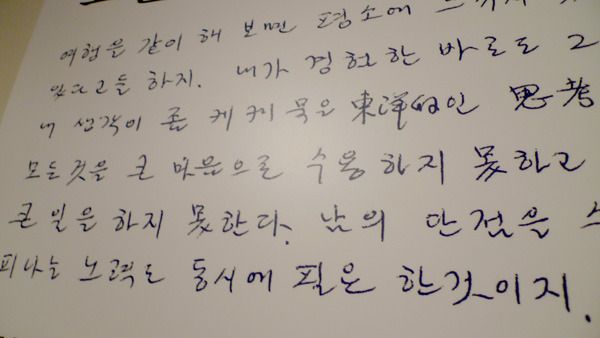 여행은 같이 해 보면 평소에
있다고들 하지. 내가 경험한 바로도 그
내 생각이 좀 케케묵은 東洋的인 思考
모든것을 큰 마음으로 수용하지 못하고
큰 일을 하지 못한다. 남의 단점을 스
피나는 노력도 동시에 필요한것이지.